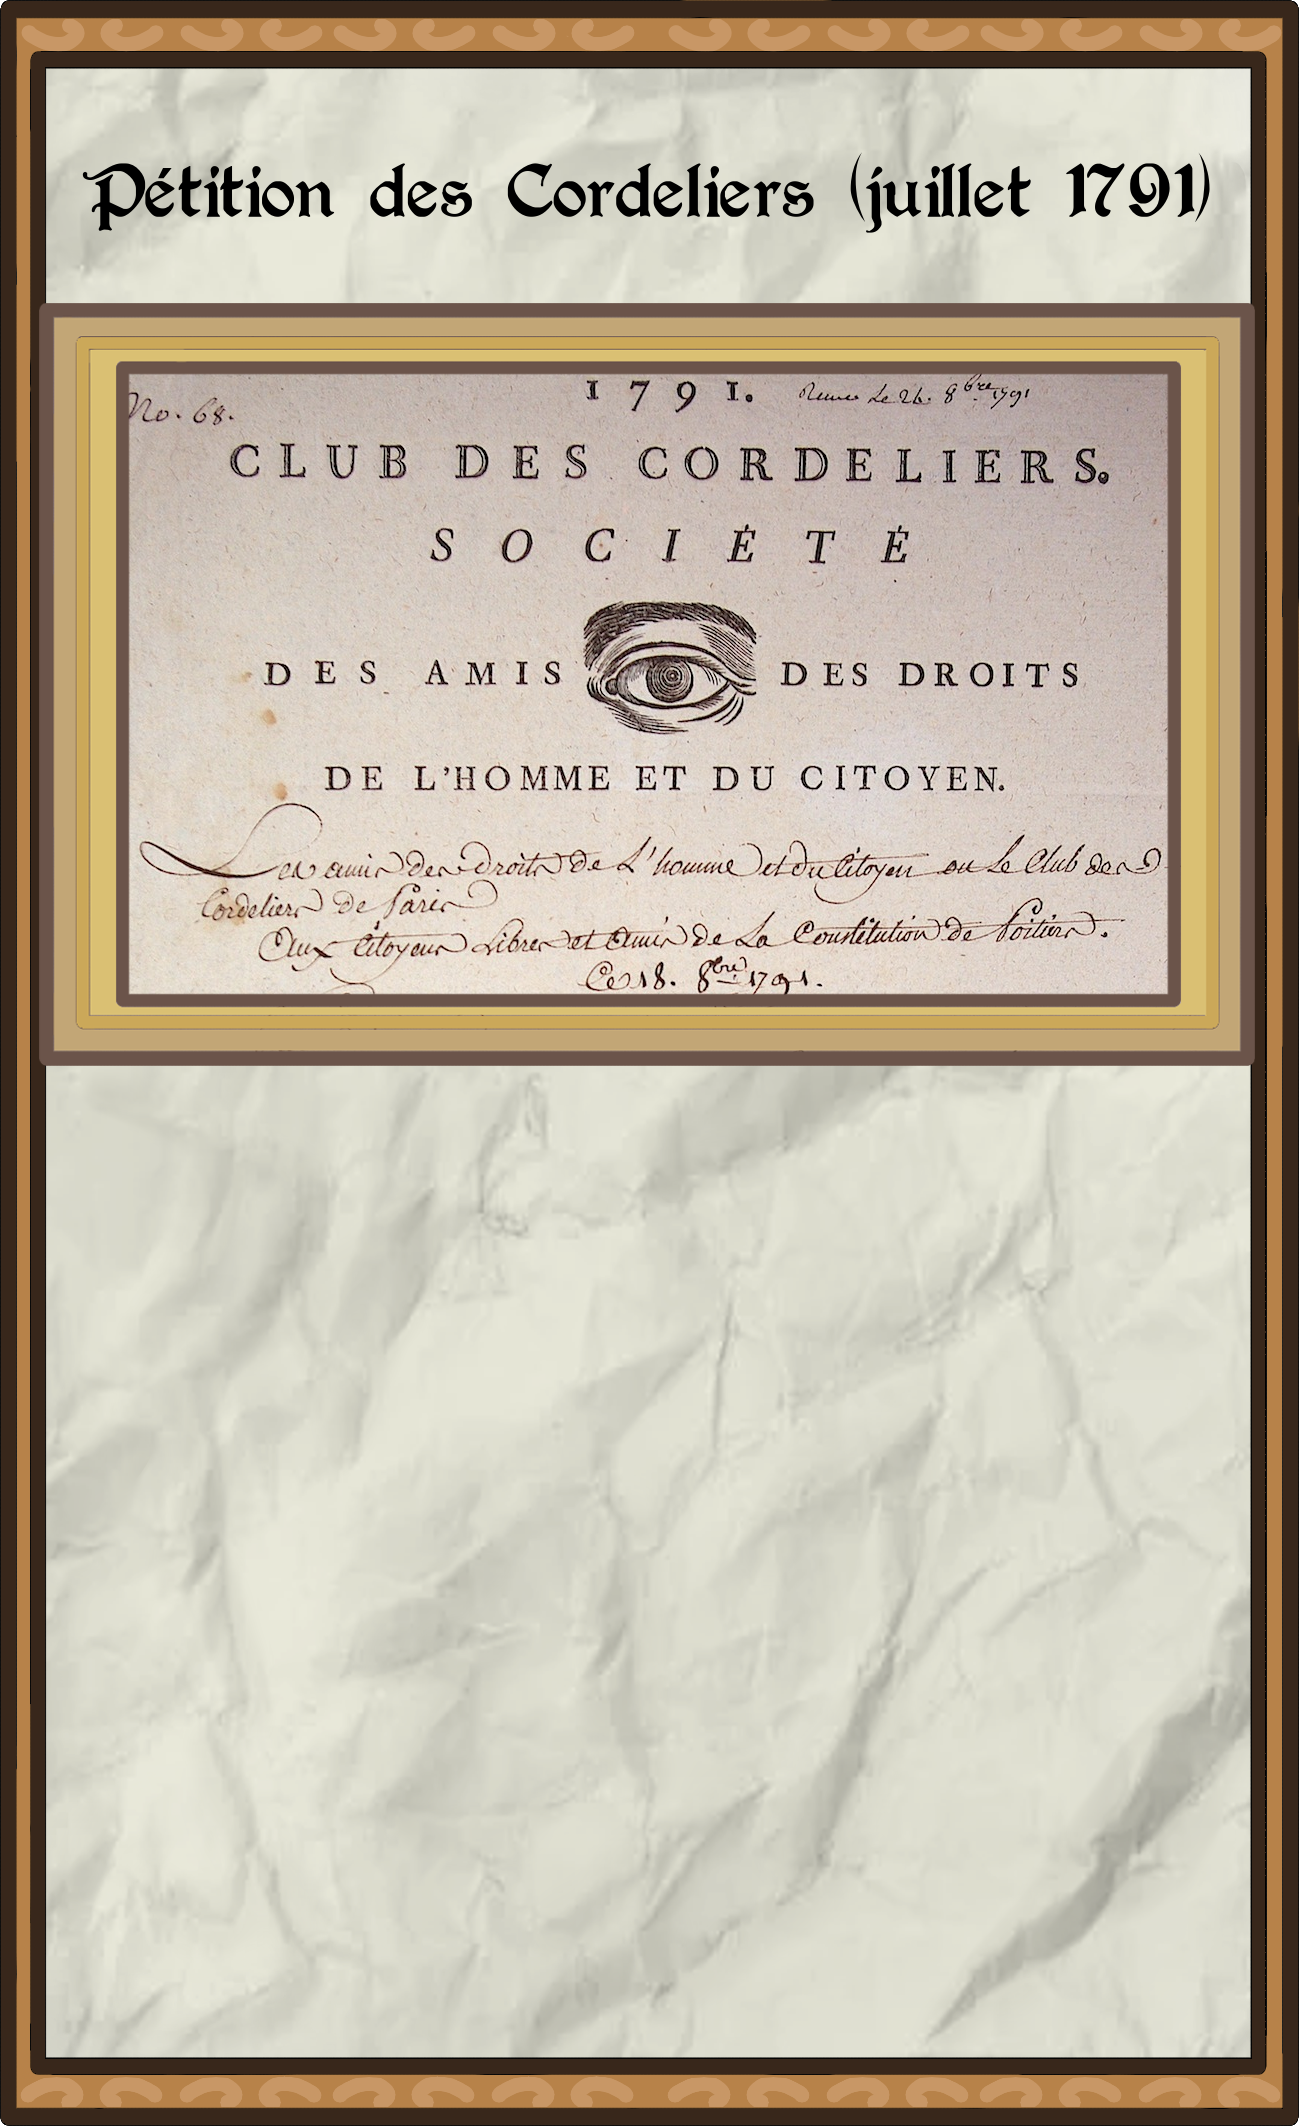 Pétition des Cordeliers (juillet 1791)
1791.
No. 68.
Le 26. 8bre 1791
CLUB DES CORDELIERS.
SOCIÉTÉ
DES AMIS DES DROITS
DE L'HOMME ET DU CITOYEN.
Les amis des droits de L'homme et du Citoyen ou Le Club des
Cordeliers de Paris
Aux Citoyens Libres et Amis de La Constitution de Poitiers.
Ce 18. 8bre 1791.